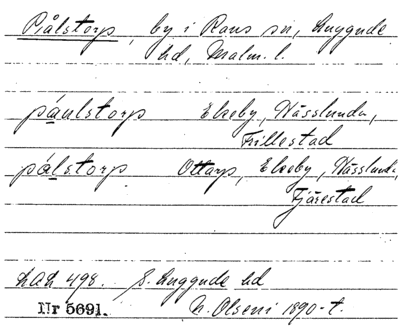 Pålstorp, by i Raus sn, Luggude
hd, Malm. l.
påulstorp Ekeby, Kåsslunda,
Frillestad
pålstorp Ottarp, Ekeby, Kåsslunda,
Fjärestad
LAL 498. S. Luggude hd
Nr 5691. N. Olséni 1890-t.